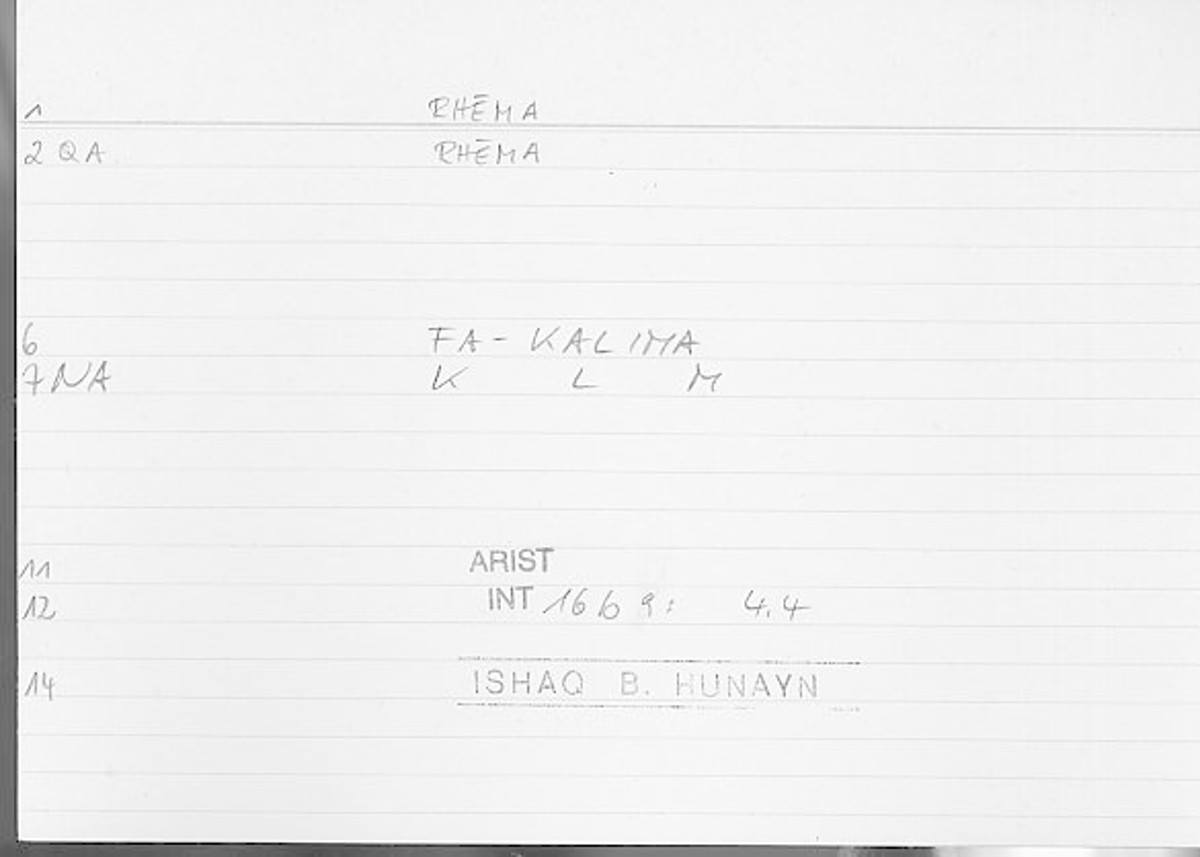 1 RHĒMA
2 QA RHĒMA
6 FA-KALIMA
7 NA K L M
11 ARIST
12 INT 16 b 9: 4.4
14 ISHAQ B. HUNAYN